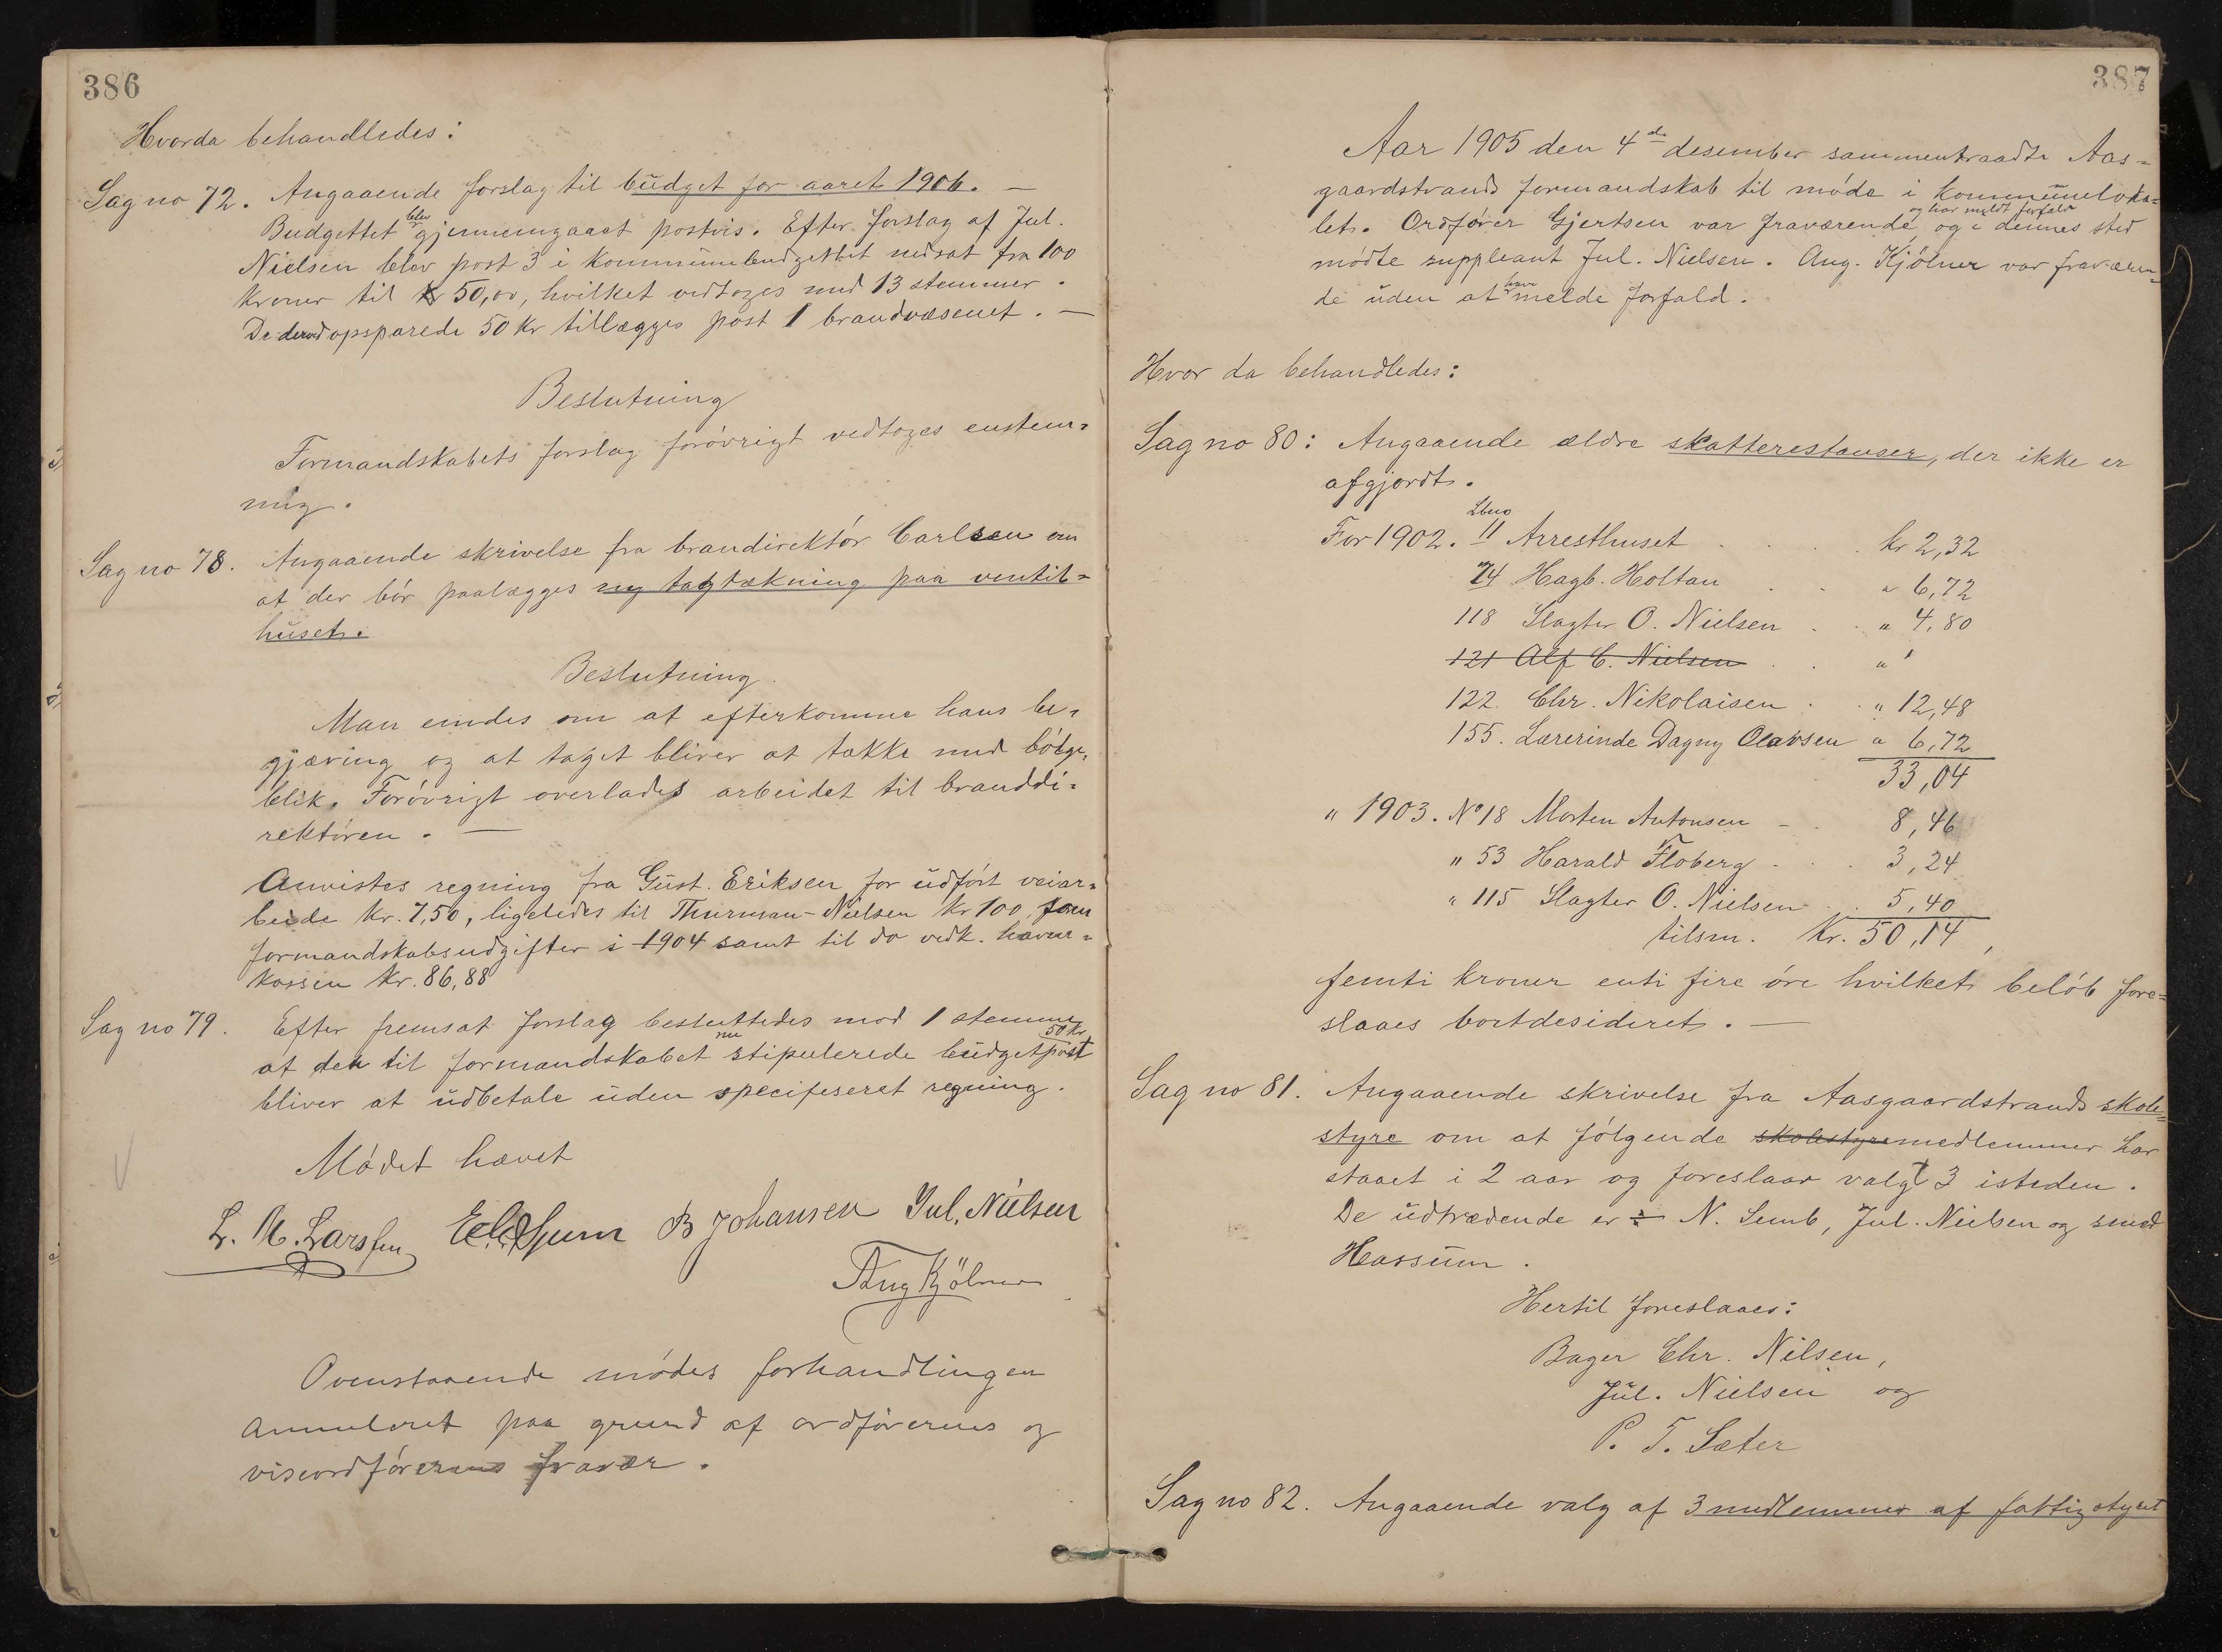 386
Hvorda behandledes:
Sag no 72. Angaaende forslag til budget for aaret 1906. —
Budgettet blev gjennemgaaet postvis. Efter forslag af Jul.
Nielsen blev post 3 i kommunebudgettet nedsat fra 100
kroner til kr 50,00, hvilket vedtoges med 13 stemmer.
De derved opsparede 50 kr tillægges post 1 brandvæsenet. —
Beslutning
Formandskabets forslag forøvrigt vedtoges enstem-
mig.
Sag no 78. Angaaende skrivelse fra brandirektør Carlsen om
at der bør paalægges ny tagtækning paa ventil-
huset.
Beslutning.
Man enedes om at efterkomme hans be-
gjæring og at taget bliver at tække med bølge-
blik. Forøvrigt overlades arbeidet til branddi-
rektøren. —
Anvistes regning fra Gust. Eriksen for udført veiar-
beide kr. 7,50, ligeledes til Thurman-Nielsen kr 100 som
formandskabsudgifter i 1904 samt til do vedk. havne-
kassen kr. 86,88
Sag no 79. Efter fremsat forslag besluttedes mod 1 stemme
at den til formandskabet nu stipulerede budgetpost 50 kr
bliver at udbetale uden specifeseret regning.
Mødet hævet
L. M. Larssen B Johansen Jul. Nielsen
Aug Kjölner
Ovenstaaende mødes forhandlingen
annuleret paa grund af ordførerens og
viseordførerens fravær.
387
Aar 1905 den 4de desember sammentraadte Aas-
gaardstrands formandskab til møde i kommuneloka-
let. Ordfører Gjertsen var fraværende og har meldt forfald og i dennes sted
mødte suppleant Jul. Nielsen. Aug. Kjölner var fraværen-
de uden at have melde forfald.
Hvor da behandledes:
Sag no 80: Angaaende ældre skatterestanser, der ikke er
afgjordt.
For 1902. Lbno 11 Arresthuset . . . . kr 2,32
74 Hagb. Holtan . . " 6,72
118 Slagter O. Nielsen . . " 4,80
121 Alf C. Nielsen . . "
122. Chr. Nikolaisen . . " 12,48
155. Lærerinde Dagny Olavsen " 6,72
33,04
" 1903. No 18 Morten Antonsen - . 8,46
" 53 Harald Floberg . . . 3,24
" 115 Slagter O. Nielsen . . 5,40
tilsm. Kr. 50,14,
femti kroner enti fire øre hvilket beløb fore-
slaaes bortdesideret. —
Sag no 81. Angaaende skrivelse fra Aasgaardstrands skole-
styre om at følgende skolestyremedlemmer har
staaet i 2 aar og foreslaar valgt 3 isteden.
De udtrædende er N. Semb, Jul. Nielsen og smed
Hassum.
Hertil foreslaaes:
Bager Chr. Nilsen,
Jul. Nielsen og
P. T. Sæter
Sag no 82. Angaaende valg af 3 medlemmer af fattigstyret